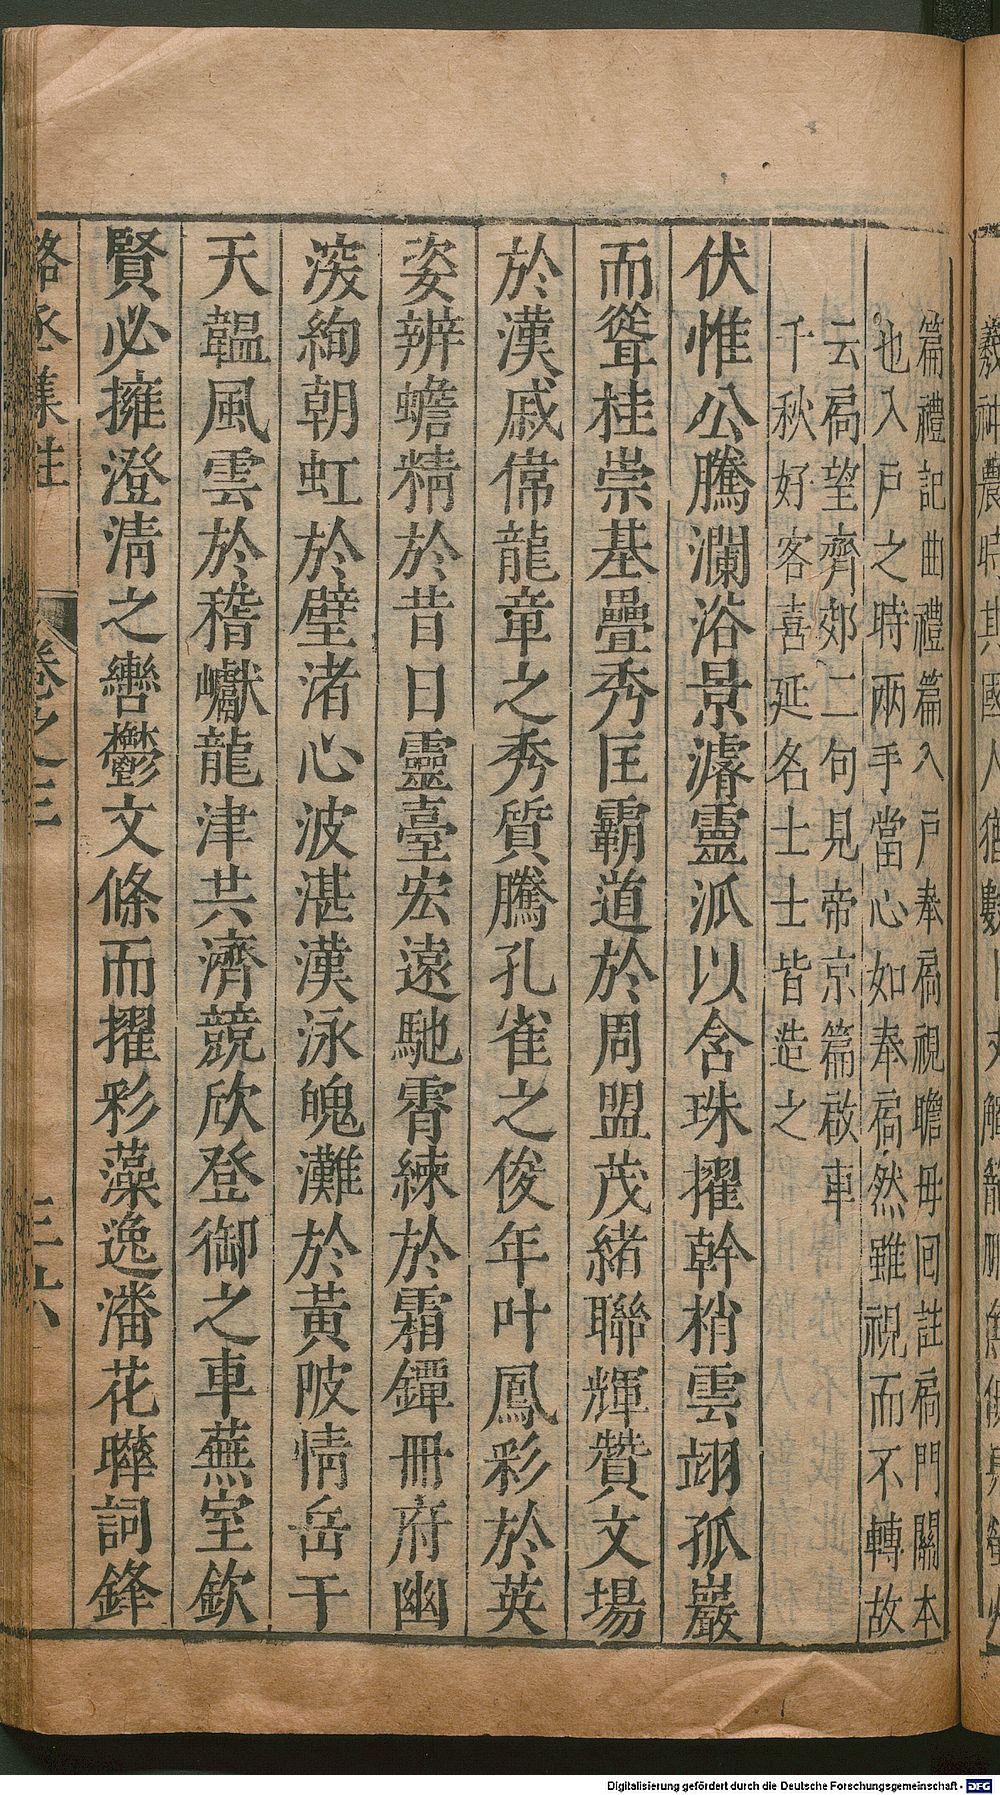 篇禮記曲禮篇入戶奉扃視瞻毋回註扃門關本
也入戶之時兩手當心如奉扃然雖視而不轉故
云扃望齊郊二句見帝京篇啟車
千秋好客喜延名士士皆造之
伏惟公騰瀾浴景濬靈派以含珠擢幹梢雲翊孤巖
而聳桂崇基疊秀匡霸道於周盟茂緒聯輝贊文場
於漢戚偉龍章之秀質騰孔雀之俊年叶鳳彩於英
姿辨蟾精於昔日靈臺宏遠馳霄練於霜鐔冊府幽
深絢朝虹於壁渚心波湛漢泳魄灘於黃陂情岳干
天韞風雲於稽巘龍津共濟競欣登御之車蕪室欽
賢必擁澄清之轡鬱文條而擢彩藻逸潘花曄詞鋒
駱丞集註 卷之三 三六